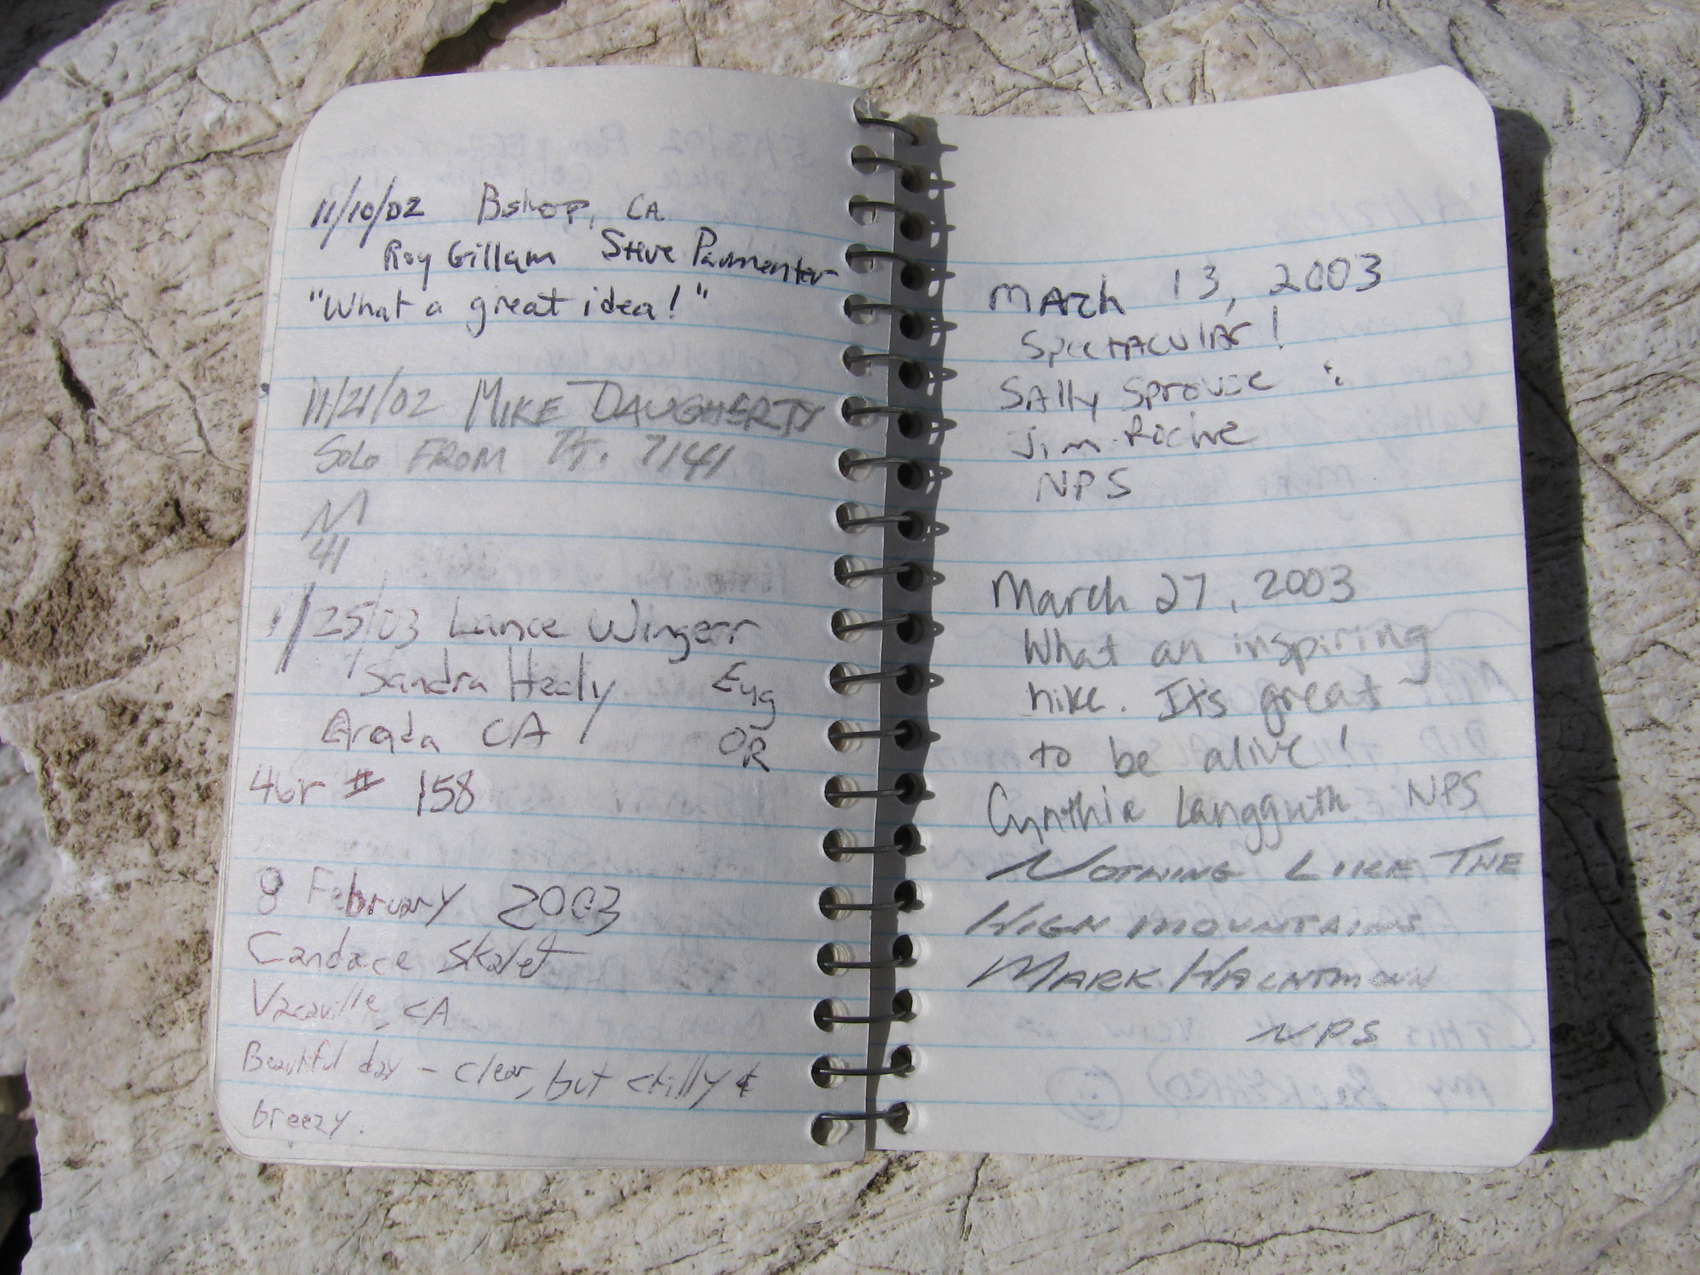 11/10/02 Bshop, CA
Roy Gillam Steve Parmenter
"What a great idea!"
11/21/02 MIKE DAUGHERTY
SOLO FROM PT. 7141
M
41
1/25/03 Lance Wingerr
Sandra Healy Eug
CA OR
# 158
8 February 2003
Candace Skalet
Vacaville, CA
Beautiful day - clear, but chilly &
breezy.
MArch 13, 2003
SpectAculAr!
SAlly Sprouse
Jim Roche
NPS
March 27, 2003
What an inspiring
hike. It's great
to be alive!
Cynthia Langguth NPS
NOTHING LIKE THE
HIGH MOUNTAINS
MARK
NPS